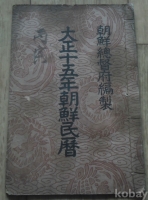 朝鮮總督府編製
大正十五年朝鮮民曆
kobay